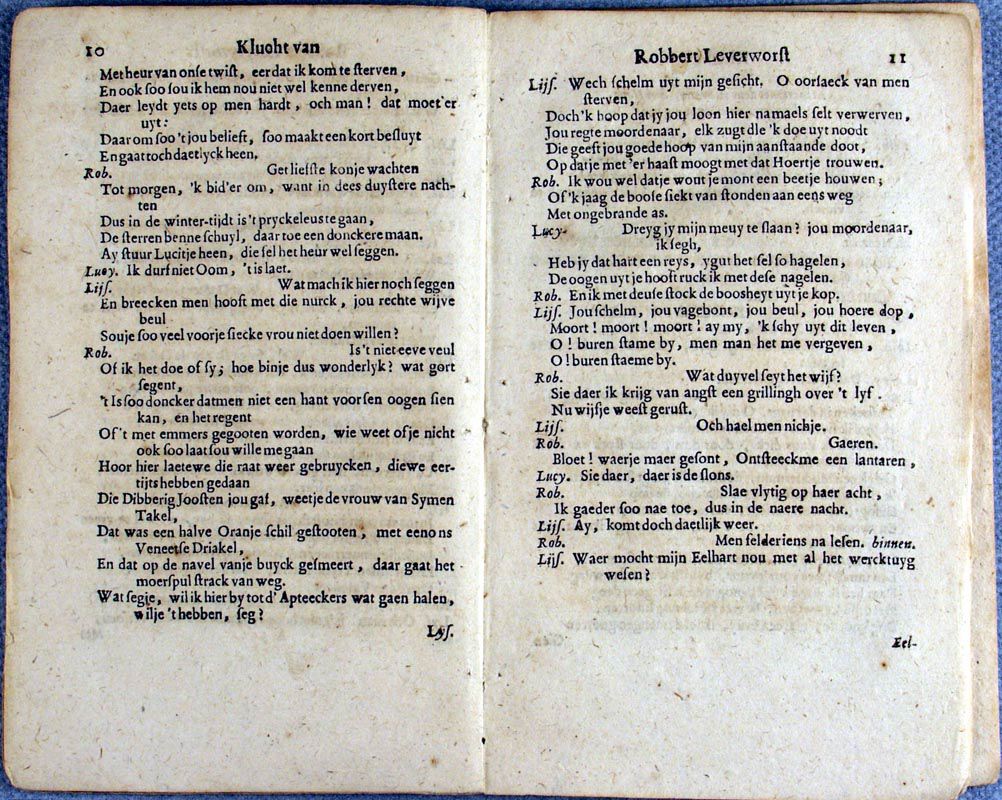 10
Klucht van
Met heur van onse twist, eerdat ik kom te sterven,
En ook soo sou ik hem nou niet wel kenne derven,
Daer leydt yets op men hardt, och man! dat moet'er
uyt:
Daar om soo't jou belieft, soo maakt een kort besluyt
En gaat toch daetlyck heen.
Rob. Get liefste kon je wachten
Tot morgen, 'k bid'er om, want in dees duystere nach-
ten
Dus in de winter-tijdt is't pryckeleus te gaan,
De sterren benne schuyl, daar toe een donckere maan.
Ay stuur Lucitje heen, die sel het heur wel seggen.
Lucy. Ik durf niet Oom, 't is laet.
Lijs. Wat mach ik hier noch seggen
En breecken men hooft met die nurck, jou rechte wijve
beul
Sou je soo veel voor je siecke vrou niet doen willen?
Rob. Is't niet eeve veul
Of ik het doe of sy; hoe bin je dus wonderlyk? wat gort
segent,
't Is soo doncker datmen niet een hant voor sen oogen sien
kan, en het regent
Of't met emmers gegooten worden, wie weet of je nicht
ook soo laat sou wille me gaan
Hoor hier laete we die raat weer gebruycken, die we eer-
tijts hebben gedaan
Die Dibberig Joosten jou gaf, weet je de vrouw van Symen
Takel,
Dat was een halve Oranje schil gestooten, met een ons
Veneetse Driakel,
En dat op de navel van je buyck gesmeert, daar gaat het
moerspul strack van weg.
Wat segje, wil ik hier by tot d'Apteeckers wat gaen halen,
wil je 't hebben, seg?
Lys.
Robbert Leverworst
11
Lijs. Wech schelm uyt mijn gesicht. O oorsaeck van men
sterven,
Doch 'k hoop dat jy jou loon hier namaels selt verwerven,
Jou regte moordenaar, elk zugt dle 'k doe uyt noodt
Die geeft jou goede hoop van mijn aanstaande doot,
Op dat je met'er haast moogt met dat Hoertje trouwen.
Rob. Ik wou wel dat je wont je mont een beetje houwen;
Of 'k jaag de boose siekt van stonden aan eens weg
Met ongebrande as.
Lucy. Dreyg jy mijn meuy te slaan? jou moordenaar,
ik segh,
Heb jy dat hart een reys, y gut het sel so hagelen,
De oogen uyt je hooft ruck ik met dese nagelen.
Rob. En ik met deuse stock de boosheyt uyt je kop.
Lijs. Jou schelm, jou vagebont, jou beul, jou hoere dop,
Moort! moort! moort! ay my, 'k schy uyt dit leven,
O! buren stame by, men man het me vergeven,
O! buren staeme by.
Rob. Wat duyvel seyt het wijf?
Sie daer ik krijg van angst een grillingh over 't lyf.
Nu wijfje weest gerust.
Lijs. Och hael men nichje.
Rob. Gaeren.
Bloet! waer je maer gesont, Ontsteeck me een lantaren,
Lucy. Sie daer, daer is de slons.
Rob. Slae vlytig op haer acht,
Ik gaeder soo nae toe, dus in de naere nacht.
Lijs. Ay, komt doch daetlijk weer.
Rob. Men selderiens na lesen. binnen.
Lijs. Waer mocht mijn Eelhart nou met al het wercktuyg
wesen?
Eel-